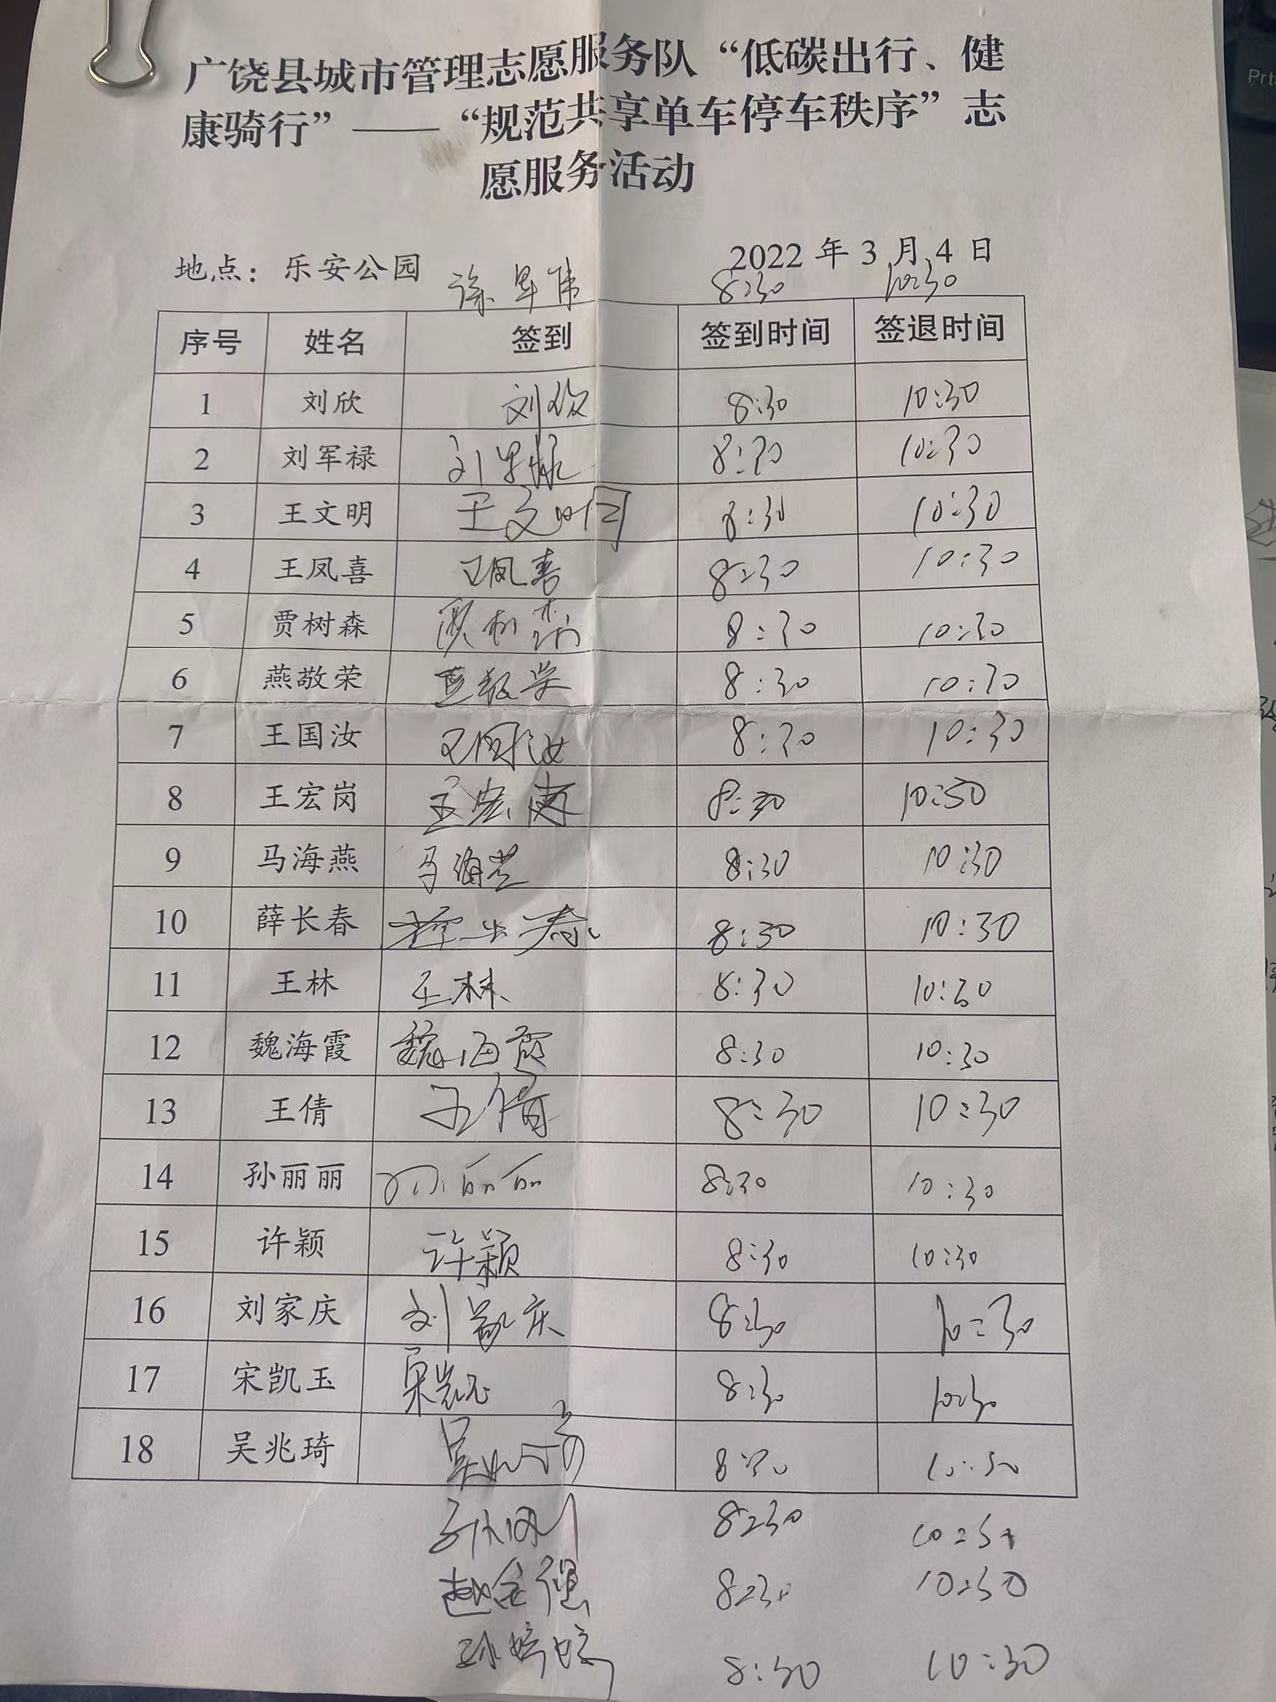 广饶县城市管理志愿服务队“低碳出行、健
康骑行”——“规范共享单车停车秩序”志
愿服务活动
地点：乐安公园 2022 年 3 月 4 日
8:30 10:30
序号 姓名 签到 签到时间 签退时间
1 刘欣 刘欣 8:30 10:30
2 刘军禄 刘军禄 8:30 10:30
3 王文明 王文明 8:30 10:30
4 王凤喜 王凤喜 8:30 10:30
5 贾树森 贾树森 8:30 10:30
6 燕敬荣 燕敬荣 8:30 10:30
7 王国汝 王国汝 8:30 10:30
8 王宏岗 王宏岗 8:30 10:30
9 马海燕 马海燕 8:30 10:30
10 薛长春 薛长春 8:30 10:30
11 王林 王林 8:30 10:30
12 魏海霞 魏海霞 8:30 10:30
13 王倩 王倩 8:30 10:30
14 孙丽丽 孙丽丽 8:30 10:30
15 许颖 许颖 8:30 10:30
16 刘家庆 刘家庆 8:30 10:30
17 宋凯玉 宋凯玉 8:30 10:30
18 吴兆琦 吴兆琦 8:30 10:30
8:30 10:30
8:30 10:30
孙婷婷 8:30 10:30